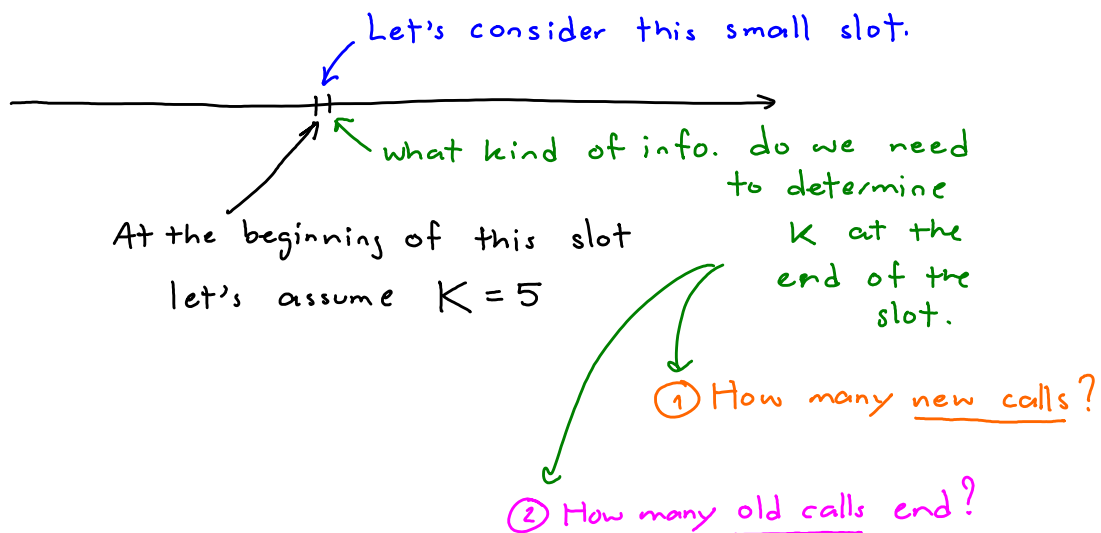 Let's consider this small slot.
what kind of info. do we need
to determine
K at the
end of the
slot.
At the beginning of this slot
let's assume K = 5
① How many new calls?
② How many old calls end?